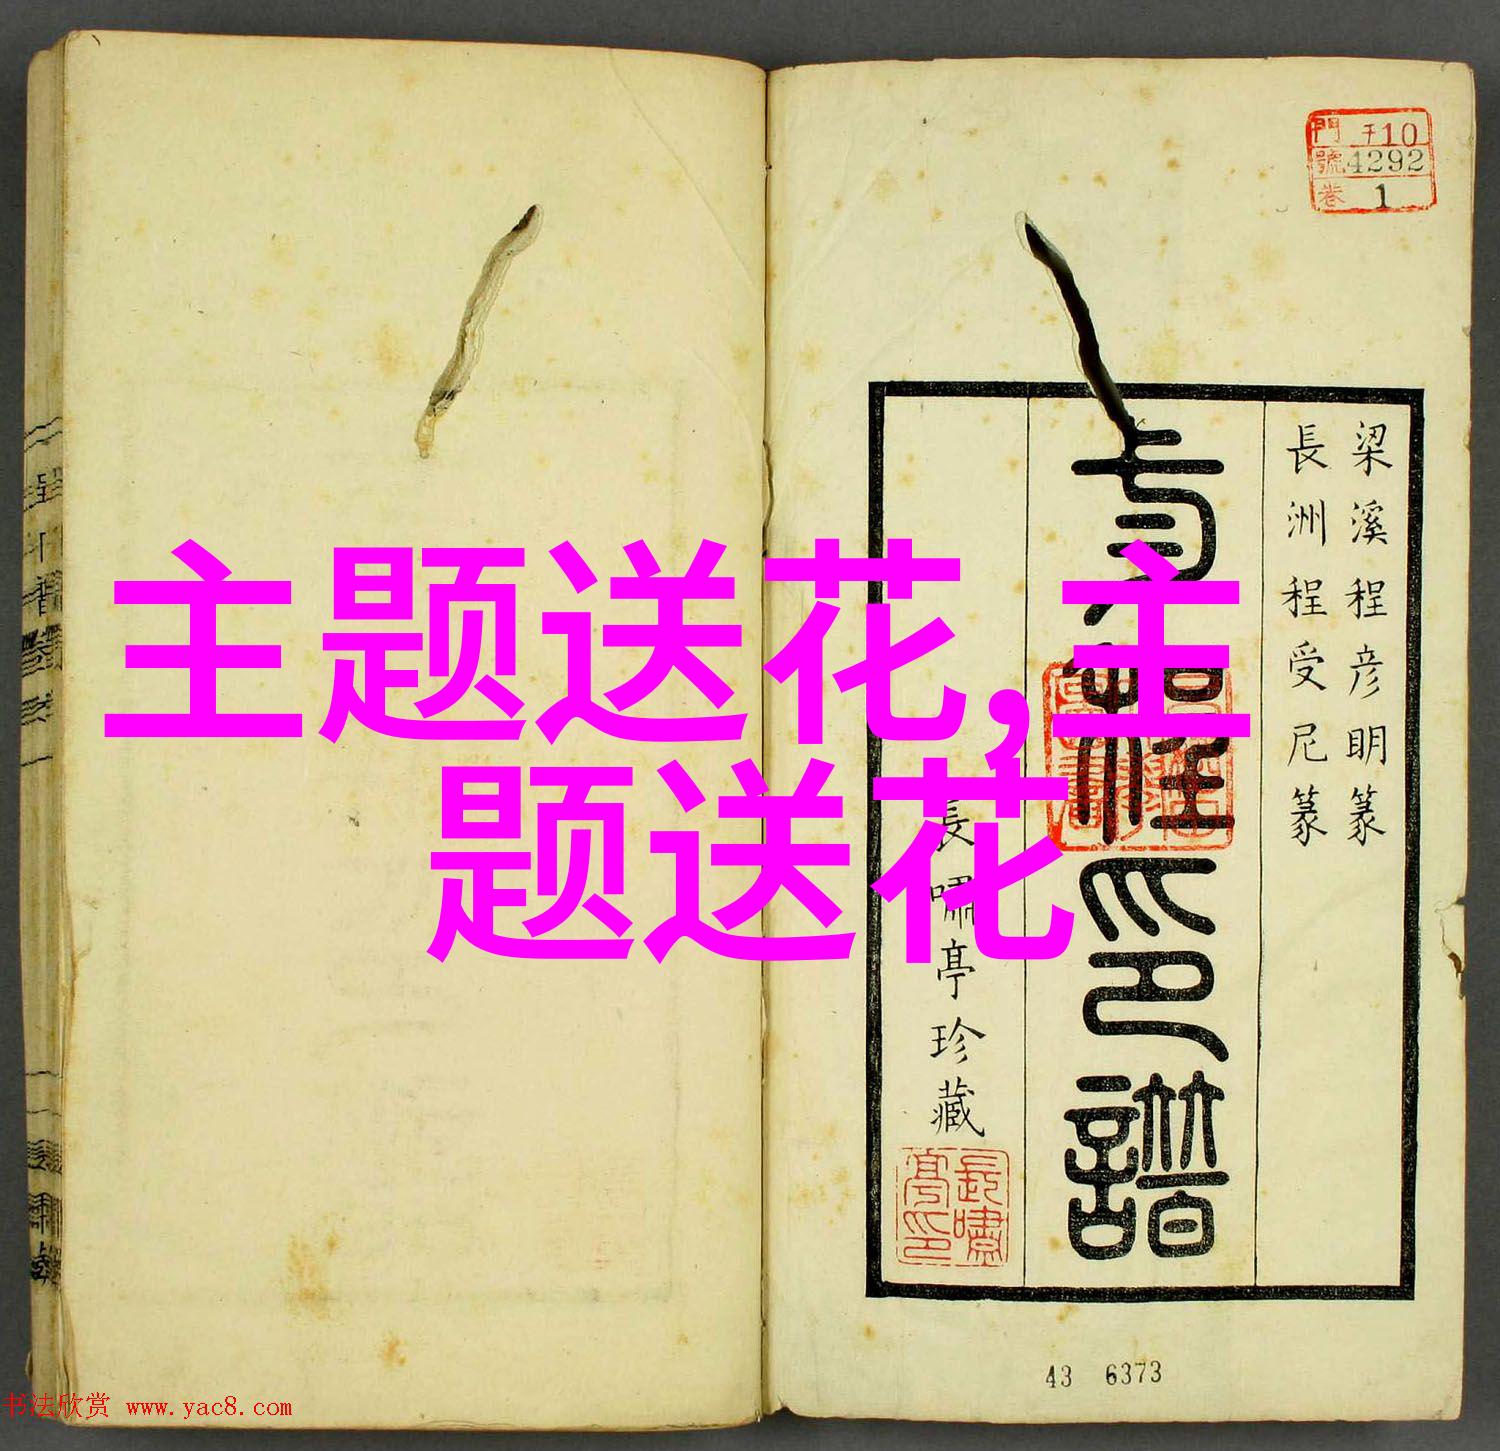 主题送花,主
题送花
門 于10
號 4292
卷 1
梁溪程彦明篆
長洲程受尼篆
印譜
長嘯亭珍藏
長嘯亭印
43 6373
书法欣赏 www.yac8.com